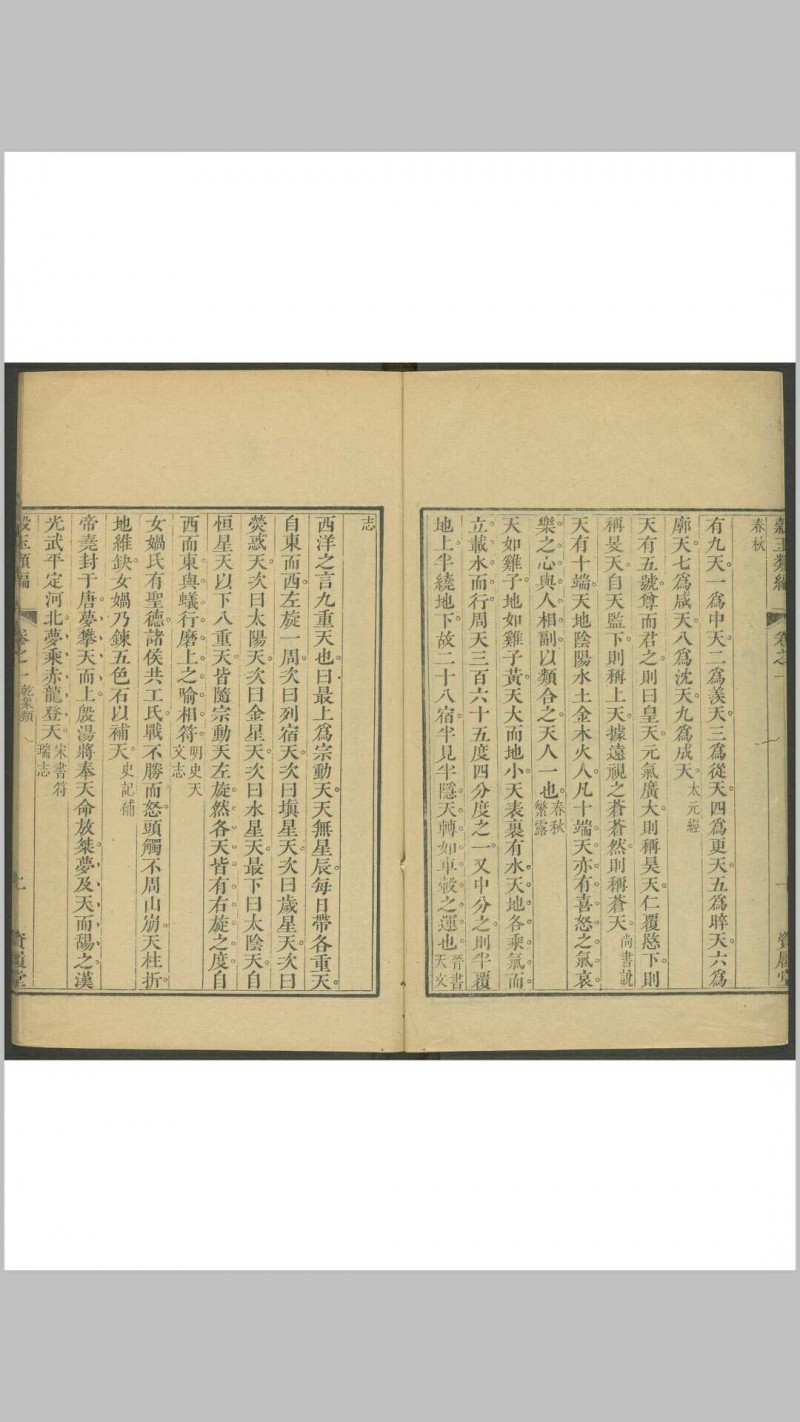 春秋
有九天。一爲中天。二爲羨天。三爲從天。四爲更天。五爲睟天。六爲
廓天。七爲咸天。八爲沈天。九爲成天。太元經
天有五號。尊而君之。則曰皇天。元氣廣大。則稱昊天。仁覆愍下。則
稱旻天。自天監下。則稱上天。據遠視之蒼蒼然。則稱蒼天。尚書說
天有十端。天地陰陽水土金木火人。凡十端。天亦有喜怒之氣。哀
樂之心。與人相副。以類合之。天人一也。春秋繁露
天如雞子。地如雞子黃。天大而地小。天表裏有水。天地各乘氣而
立。載水而行。周天三百六十五度四分度之一。又中分之。則半覆
地上。半繞地下。故二十八宿半見半隱。天轉如車轂之運也。晉書天文
卷之一
志
西洋之言九重天也。曰最上爲宗動天。天無星辰。每日帶各重天。
自東而西。左旋一周。次曰列宿天。次曰塡星天。次曰歲星天。次曰
熒惑天。次曰太陽天。次曰金星天。次曰水星天。最下曰太陰天。自
恒星天以下八重天。皆隨宗動天左旋。然各天皆有右旋之度。自
西而東。與蟻行磨上之喻相符。明史天文志
女媧氏有聖德。諸侯共工氏戰不勝而怒。頭觸不周山崩。天柱折。
地維缺。女媧乃鍊五色石以補天。史記補
帝堯封于唐。夢攀天而上。殷湯將奉天命放桀。夢及天而䑛之。漢
光武平定河北。夢乘赤龍登天。宋書符瑞志
類編 卷之一 乾象類